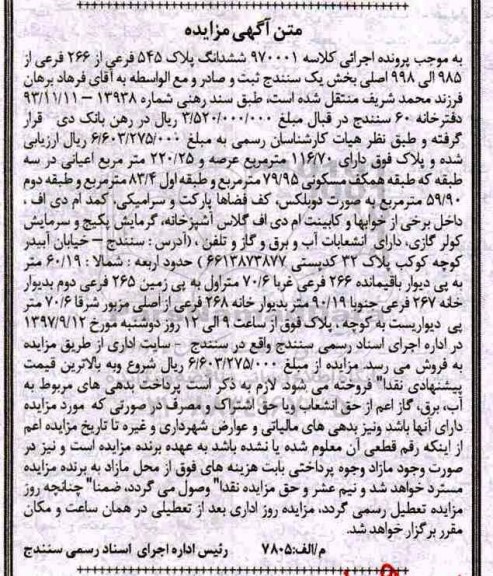 متن آگهی مزایده
به موجب پرونده اجرائی کلاسه ۹۷۰۰۰۱ ششدانگ پلاک ۵۴۵ فرعی از ۲۶۶ فرعی از
۹۸۵ الی ۹۹۸ اصلی بخش یک سنندج ثبت و صادر و مع الواسطه به آقای فرهاد برهان
فرزند محمد شریف منتقل شده است، طبق سند رهنی شماره ۱۳۹۳۸ – ۹۳/۱۱/۱۱
دفترخانه ۶۰ سنندج در قبال مبلغ ۳/۵۲۰/۰۰۰/۰۰۰ ریال در رهن بانک دی قرار
گرفته و طبق نظر هیات کارشناسان رسمی به مبلغ ۶/۶۰۳/۲۷۵/۰۰۰ ریال ارزیابی
شده و پلاک فوق دارای ۱۱۶/۷۰ مترمربع عرصه و ۲۲۰/۲۵ متر مربع اعیانی در سه
طبقه که طبقه همکف مسکونی ۷۹/۹۵ مترمربع و طبقه اول ۸۳/۴ مترمربع و طبقه دوم
۵۹/۹۰ مترمربع به صورت دوبلکس، کف فضاها پارکت و سرامیکی، کمد ام دی اف ،
داخل برخی از خوابها و کابینت ام دی اف گلاس آشپزخانه، گرمایش پکیج و سرمایش
کولر گازی، دارای انشعابات آب و برق و گاز و تلفن ، (آدرس : سنندج – خیابان آبیدر
کوچه کوکب پلاک ۳۲ کدپستی ۶۶۱۳۸۷۳۸۷۷ ) حدود اربعه : شمالا : ۶۰/۱۹ متر
به پی دیوار باقیمانده ۲۶۶ فرعی غربا ۷۰/۶ متراول به پی زمین ۲۶۵ فرعی دوم بدیوار
خانه ۲۶۷ فرعی جنوبا ۹۰/۱۹ متر بدیوار خانه ۲۶۸ فرعی از اصلی مزبور شرقا ۷۰/۶ متر
پی دیواریست به کوچه ، پلاک فوق از ساعت ۹ الی ۱۲ روز دوشنبه مورخ ۱۳۹۷/۹/۱۲
در اداره اجرای اسناد رسمی سنندج واقع در سنندج - سایت اداری از طریق مزایده
به فروش می رسد. مزایده از مبلغ ۶/۶۰۳/۲۷۵/۰۰۰ ریال شروع وبه بالاترین قیمت
پیشنهادی نقدا" فروخته می شود. لازم به ذکر است پرداخت بدهی های مربوط به
آب، برق، گاز اعم از حق انشعاب ویا حق اشتراک و مصرف در صورتی که مورد مزایده
دارای آنها باشد ونیز بدهی های مالیاتی و عوارض شهرداری و غیره تا تاریخ مزایده اعم
از اینکه رقم قطعی آن معلوم شده یا نشده باشد به عهده برنده مزایده است و نیز در
صورت وجود مازاد وجوه پرداختی بابت هزینه های فوق از محل مازاد به برنده مزایده
مسترد خواهد شد و نیم عشر و حق مزایده نقدا" وصول می گردد، ضمنا" چنانچه روز
مزایده تعطیل رسمی گردد، مزایده روز اداری بعد از تعطیلی در همان ساعت و مکان
مقرر برگزار خواهد شد.
م/الف:۷۸۰۵ رئیس اداره اجرای اسناد رسمی سنندج